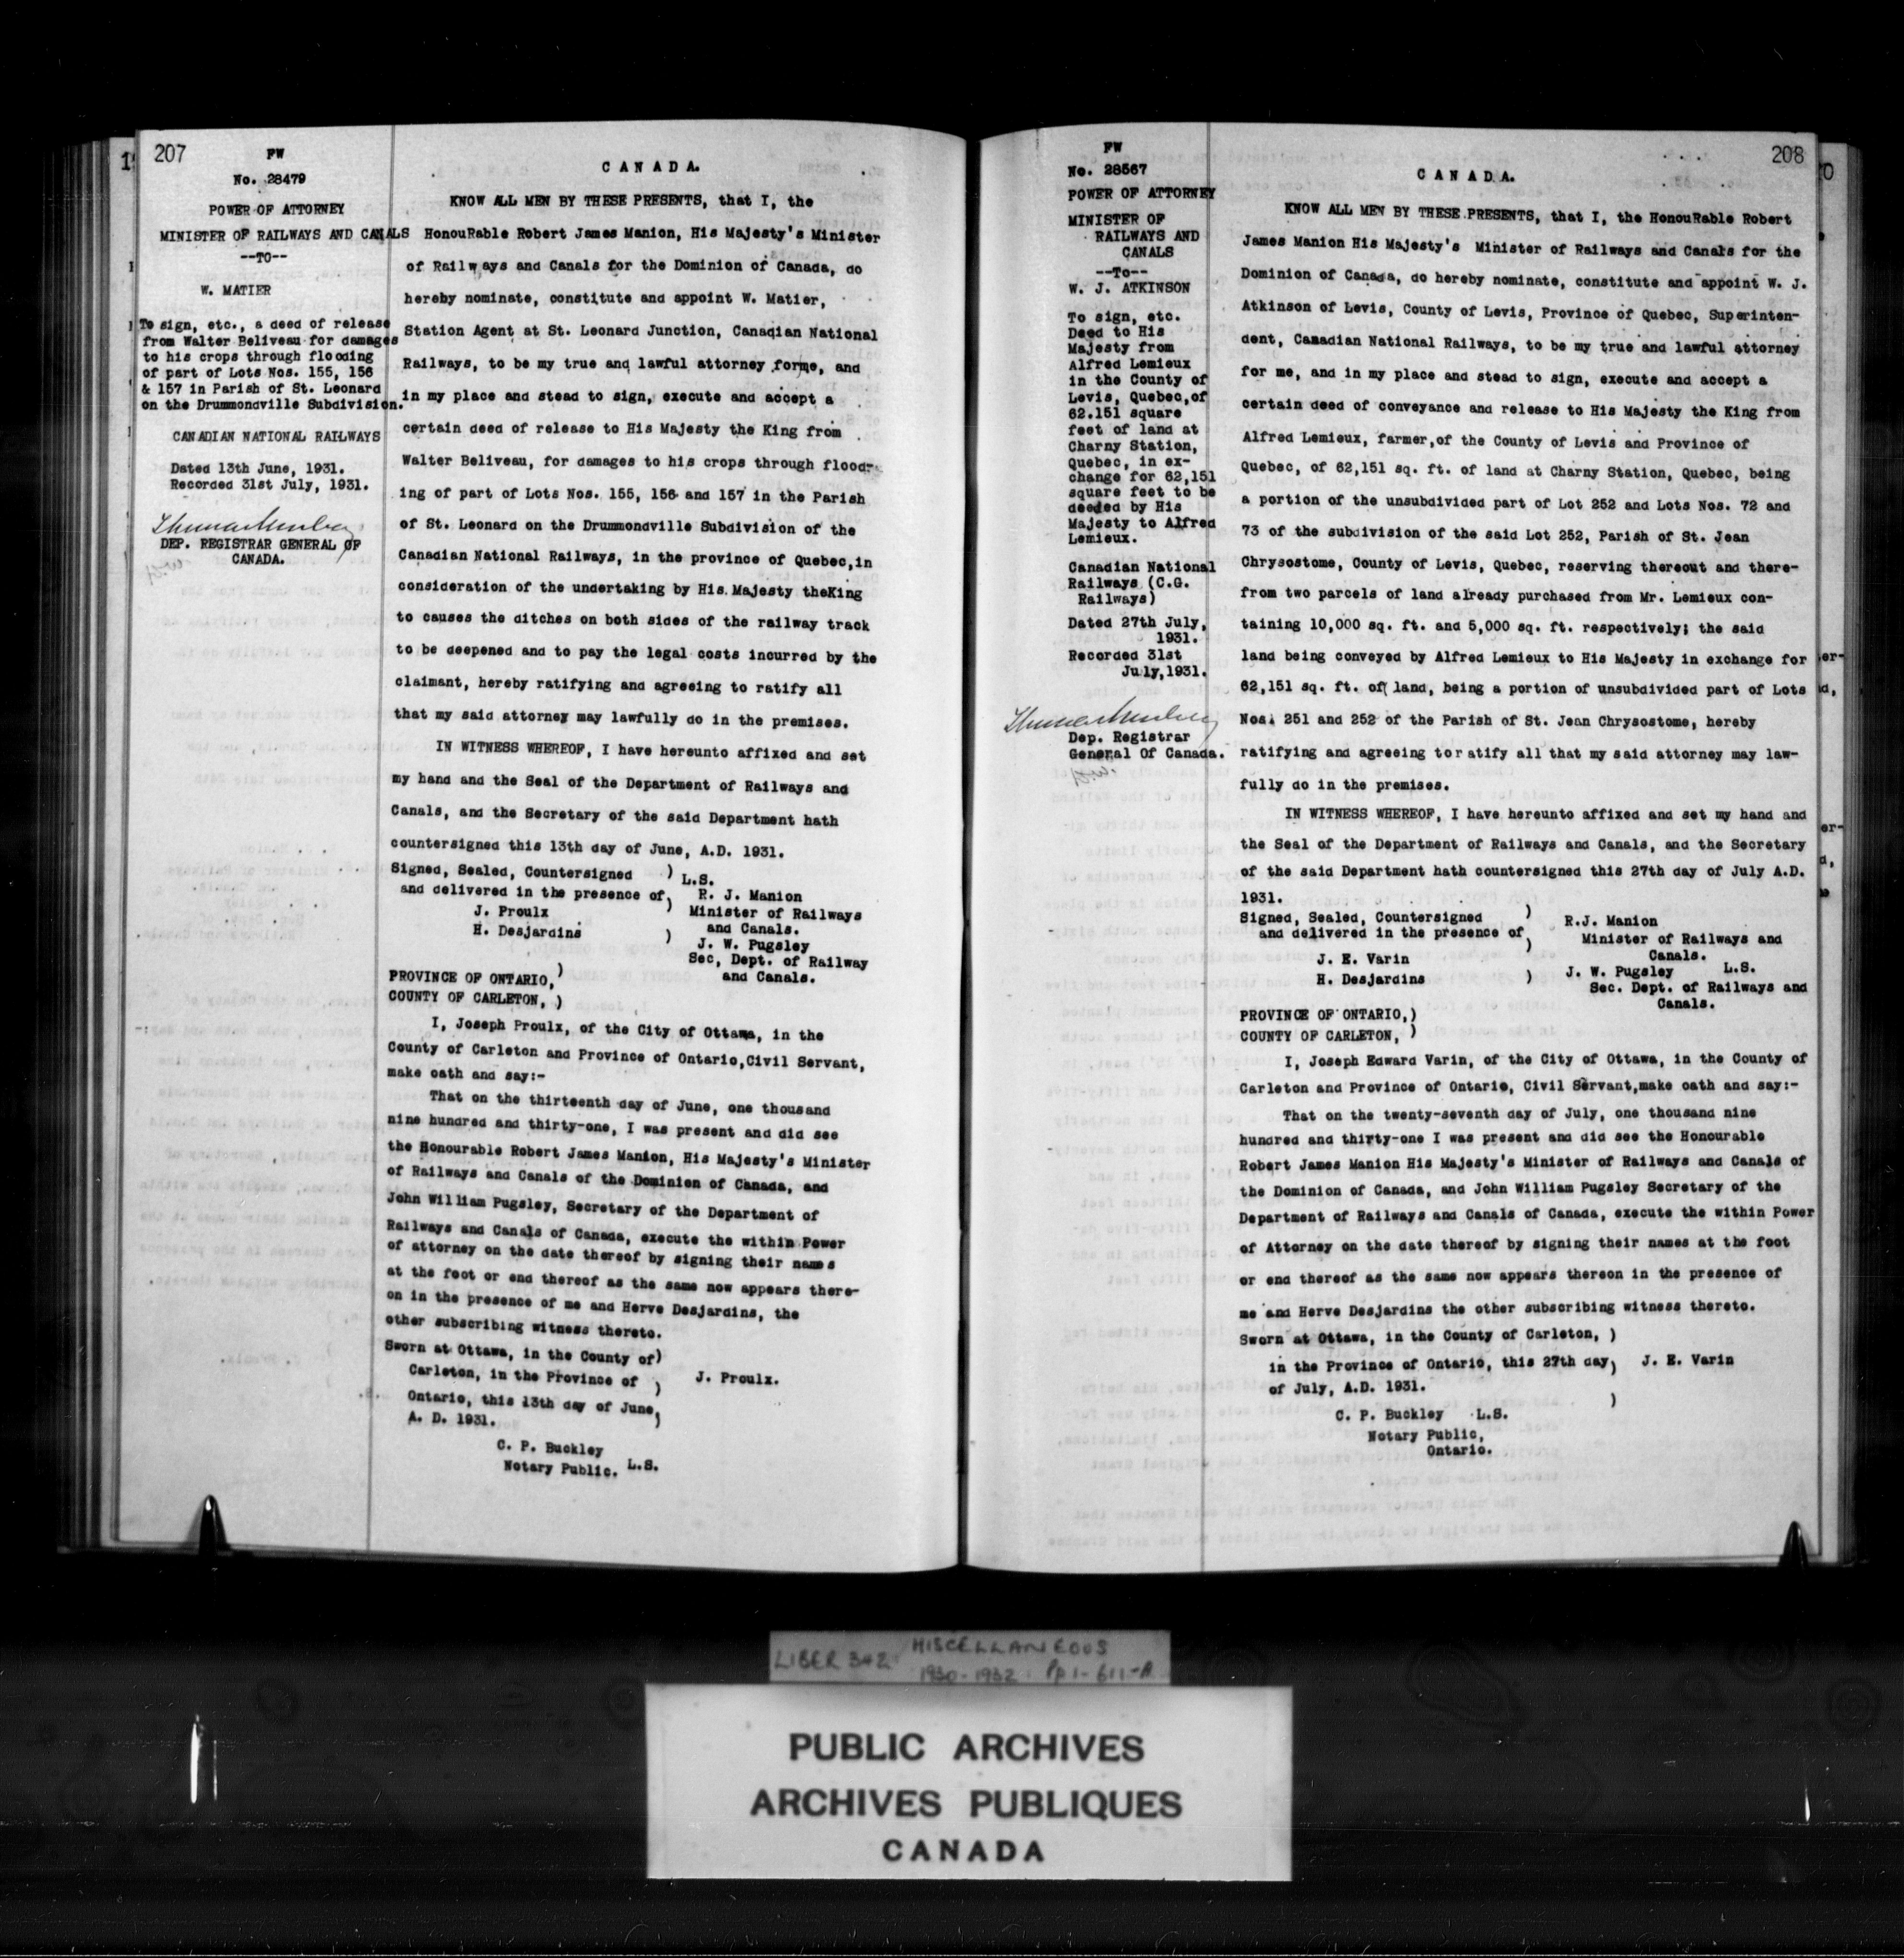 207
FW
No. 28479
POWER OF ATTORNEY
MINISTER OF RAILWAYS AND CANALS
--TO--
W. MATIER
To sign, etc., a deed of release
from Walter Beliveau for damages
to his crops through flooding
of part of Lots Nos. 155, 156
& 157 in Parish of St. Leonard
on the Drummondville Subdivision.
CANADIAN NATIONAL RAILWAYS
Dated 13th June, 1931.
Recorded 31st July, 1931.
DEP. REGISTRAR GENERAL OF
CANADA.
C A N A D A.
KNOW ALL MEN BY THESE PRESENTS, that I, the
HonouRable Robert James Manion, His Majesty's Minister
of Railways and Canals for the Dominion of Canada, do
hereby nominate, constitute and appoint W. Matier,
Station Agent at St. Leonard Junction, Canadian National
Railways, to be my true and lawful attorney forme, and
in my place and stead to sign, execute and accept a
certain deed of release to His Majesty the King from
Walter Beliveau, for damages to his crops through flood-
ing of part of Lots Nos. 155, 156 and 157 in the Parish
of St. Leonard on the Drummondville Subdivision of the
Canadian National Railways, in the province of Quebec,in
consideration of the undertaking by His Majesty theKing
to causes the ditches on both sides of the railway track
to be deepened and to pay the legal costs incurred by the
claimant, hereby ratifying and agreeing to ratify all
that my said attorney may lawfully do in the premises.
IN WITNESS WHEREOF, I have hereunto affixed and set
my hand and the Seal of the Department of Railways and
Canals, and the Secretary of the said Department hath
countersigned this 13th day of June, A.D. 1931.
Signed, Sealed, Countersigned ) L.S.
and delivered in the presence of) R. J. Manion
J. Proulx Minister of Railways
and Canals.
H. Desjardins ) J. W. Pugsley
Sec, Dept. of Railway
and Canals.
PROVINCE OF ONTARIO,)
COUNTY OF CARLETON, )
I, Joseph Proulx, of the City of Ottawa, in the
County of Carleton and Province of Ontario,Civil Servant,
make oath and say:-
That on the thirteenth day of June, one thousand
nine hundred and thirty-one, I was present and did see
the Honourable Robert James Manion, His Majesty's Minister
of Railways and Canals of the Dominion of Canada, and
John William Pugsley, Secretary of the Department of
Railways and Canals of Canada, execute the within Power
of attorney on the date thereof by signing their names
at the foot or end thereof as the same now appears there-
on in the presence of me and Herve Desjardins, the
other subscribing witness thereto.
Sworn at Ottawa, in the County of)
Carleton, in the Province of ) J. Proulx.
Ontario, this 13th day of June,
A. D. 1931. )
C. P. Buckley
Notary Public. L.S.
208
FW
No. 28567
POWER OF ATTORNEY
MINISTER OF
RAILWAYS AND
CANALS
--To--
W. J. ATKINSON
To sign, etc.
Deed to His
Majesty from
Alfred Lemieux
in the County of
Levis, Quebec,of
62.151 square
feet of land at
Charny Station,
Quebec, in ex-
change for 62,151
square feet to be
deeded by His
Majesty to Alfred
Lemieux.
Canadian National
Railways (C.G.
Railways)
Dated 27th July,
1931.
Recorded 31st
July,1931.
Dep. Registrar
General Of Canada.
C A N A D A.
KNOW ALL MEN BY THESE PRESENTS, that I, the HonouRable Robert
James Manion His Majesty's Minister of Railways and Canals for the
Dominion of Canada, do hereby nominate, constitute and appoint W. J.
Atkinson of Levis, County of Levis, Province of Quebec, Superinten-
dent, Canadian National Railways, to be my true and lawful attorney
for me, and in my place and stead to sign, execute and accept a
certain deed of conveyance and release to His Majesty the King from
Alfred Lemieux, farmer,of the County of Levis and Province of
Quebec, of 62,151 sq. ft. of land at Charny Station, Quebec, being
a portion of the unsubdivided part of Lot 252 and Lots Nos. 72 and
73 of the subdivision of the said Lot 252, Parish of St. Jean
Chrysostome, County of Levis, Quebec, reserving thereout and there-
from two parcels of land already purchased from Mr. Lemieux con-
taining 10,000 sq. ft. and 5,000 sq. ft. respectively; the said
land being conveyed by Alfred Lemieux to His Majesty in exchange for
62,151 sq. ft. of land, being a portion of unsubdivided part of Lots
Nos. 251 and 252 of the Parish of St. Jean Chrysostome, hereby
ratifying and agreeing tor atify all that my said attorney may law-
fully do in the premises.
IN WITNESS WHEREOF, I have hereunto affixed and set my hand and
the Seal of the Department of Railways and Canals, and the Secretary
of the said Department hath countersigned this 27th day of July A.D.
1931.
Signed, Sealed, Countersigned ) R.J. Manion
and delivered in the presence of) Minister of Railways and
Canals.
J. E. Varin
H. Desjardins ) J. W. Pugsley L.S.
Sec. Dept. of Railways and
Canals.
PROVINCE OF ONTARIO,)
COUNTY OF CARLETON, )
I, Joseph Edward Varin, of the City of Ottawa, in the County of
Carleton and Province of Ontario, Civil Servant,make oath and say:-
That on the twenty-seventh day of July, one thousand nine
hundred and thirty-one I was present and did see the Honourable
Robert James Manion His Majesty's Minister of Railways and Canals of
the Dominion of Canada, and John William Pugsley Secretary of the
Department of Railways and Canals of Canada, execute the within Power
of Attorney on the date thereof by signing their names at the foot
or end thereof as the same now appears thereon in the presence of
me and Herve Desjardins the other subscribing witness thereto.
Sworn at Ottawa, in the County of Carleton, )
in the Province of Ontario, this 27th day) J. E. Varin
of July, A.D. 1931. )
C. P. Buckley L.S.
Notary Public,
Ontario.
LIBER 342 MISCELLANEOUS
1930-1932 Pp 1-611-A
PUBLIC ARCHIVES
ARCHIVES PUBLIQUES
CANADA